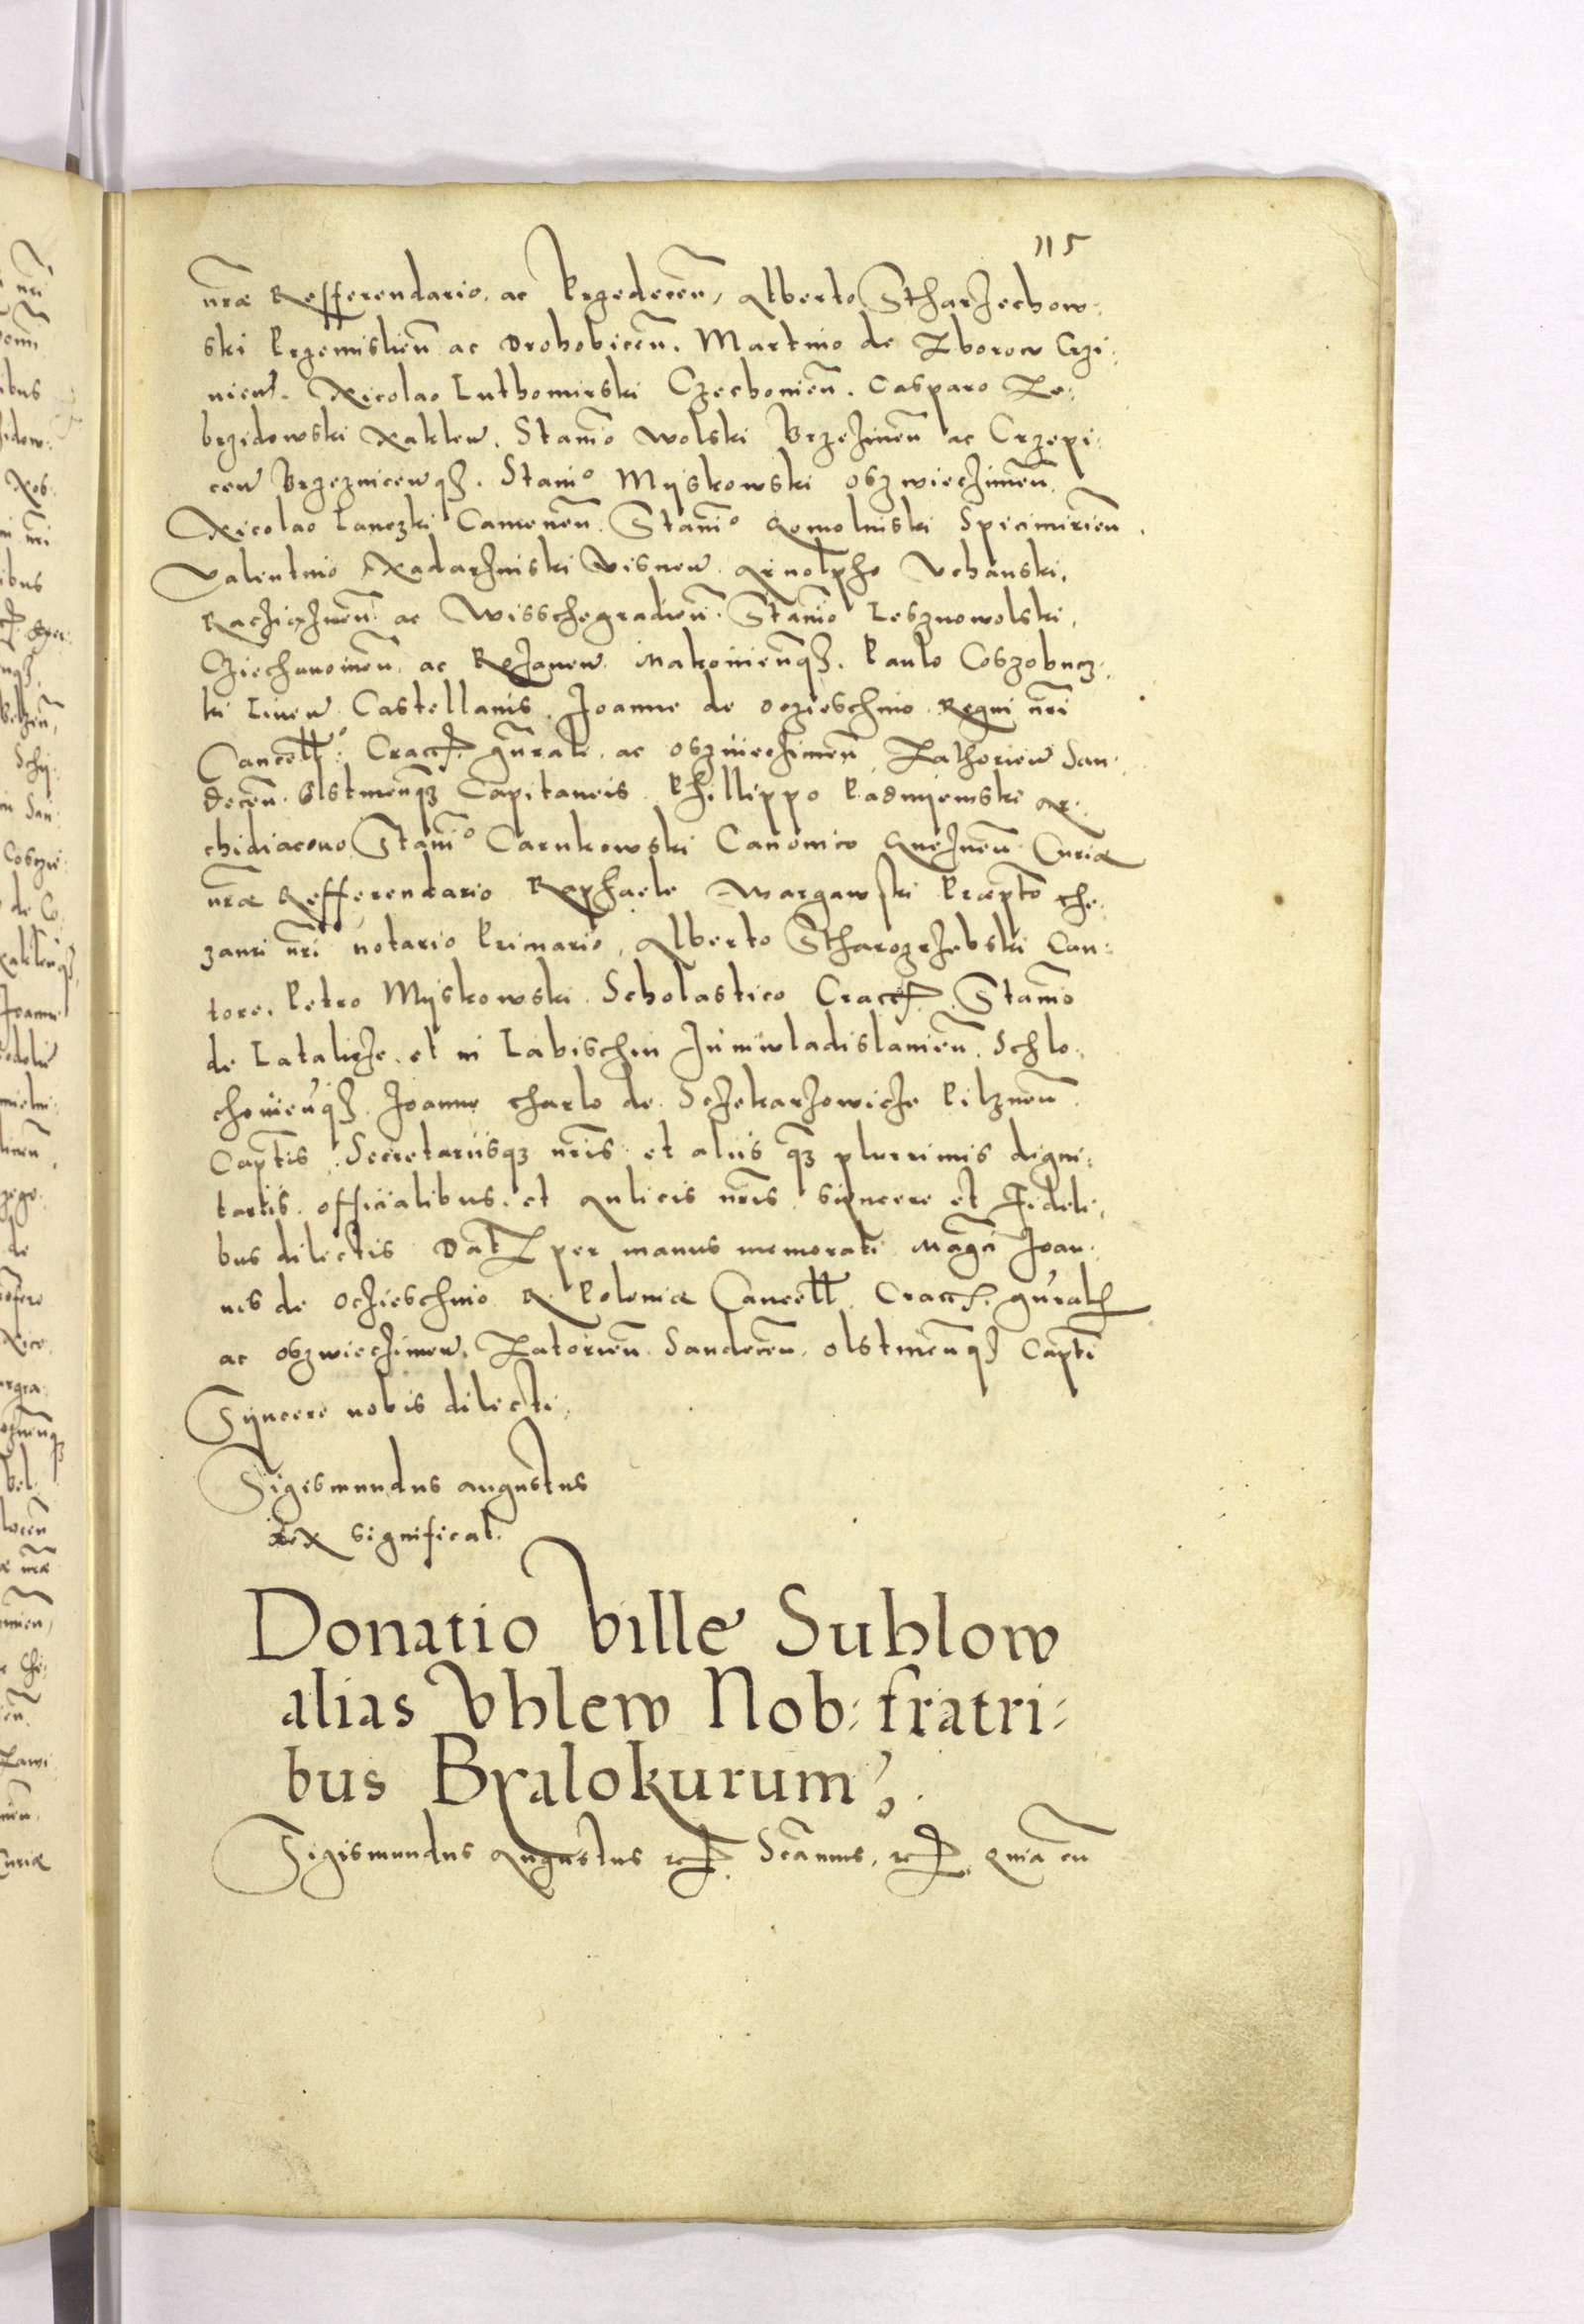 115
nrae Refferendario. ac Przedecen, Alberto Stharzechow-
ski Przemislien ac Drohobicen. Martino de Zborow Crzi-
nicen. Nicolao Luthomirski Czechonien. Casparo Ze-
brzidowski Naklen. Stanio Wolski Brzezinen ac Crzepi-
cen Brzeznicenqz. Stanio Myskowski Oszwieczimen
Nicolao Lanczki Camenen. Stanio Gomolniski Spicimirien.
Valentino Nadarzinski Visnen. Arnolpho Vchanski,
Racziaznen ac Wisschegradien. Stanio Lesznowolski,
Cziechanoinen. ac Rozanen. Makoinenqz. Paulo Coszobucz-
ki Liuen Castellanis. Joanne de Oczieschino Regni nri
Cancello: Cracc. gnrali. ac Oszwieczimen Zathorien San-
decen. Olstinenqz Capitaneis. Phillippo Padnyewski Ar-
chidiacono Stanio Carnkowski Canonico Gneznen Curiae
nrae Refferendario Raphaele Wargawski Praepto The-
zauri nri notario Primario, Alberto Starogrzebski Can-
tore. Petro Myskowski. Scholastico Cracc. Stanio
de Lataliche. et in Labischin Juniwladislauien. Schlo-
chouienqz. Joanne Tharlo de Sczekarzowicze Pilznen
Captis. Secretariisqz nris et aliis qz plurrimis digni-
tariis. officialibus. et Aulicis nris syncere et Fideli-
bus dilectis Dat per manus memorati Magci Joan-
nis de Oczieschino R. Poloniae Cancell. Cracc. gnralis
ac Oszwieczimen. Zatorien Sandecen. Olstinenqz Capti
Syncere nobis dilecti.
Sigismundus augustus
Rex significat.
Donatio ville Suhlow
alias Vhlew Nob: fratri-
bus Byalokurum.
Sigismundus Augustus etc. Scamus. etc. Quia cu